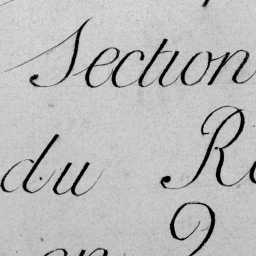 Section
du R
en 2